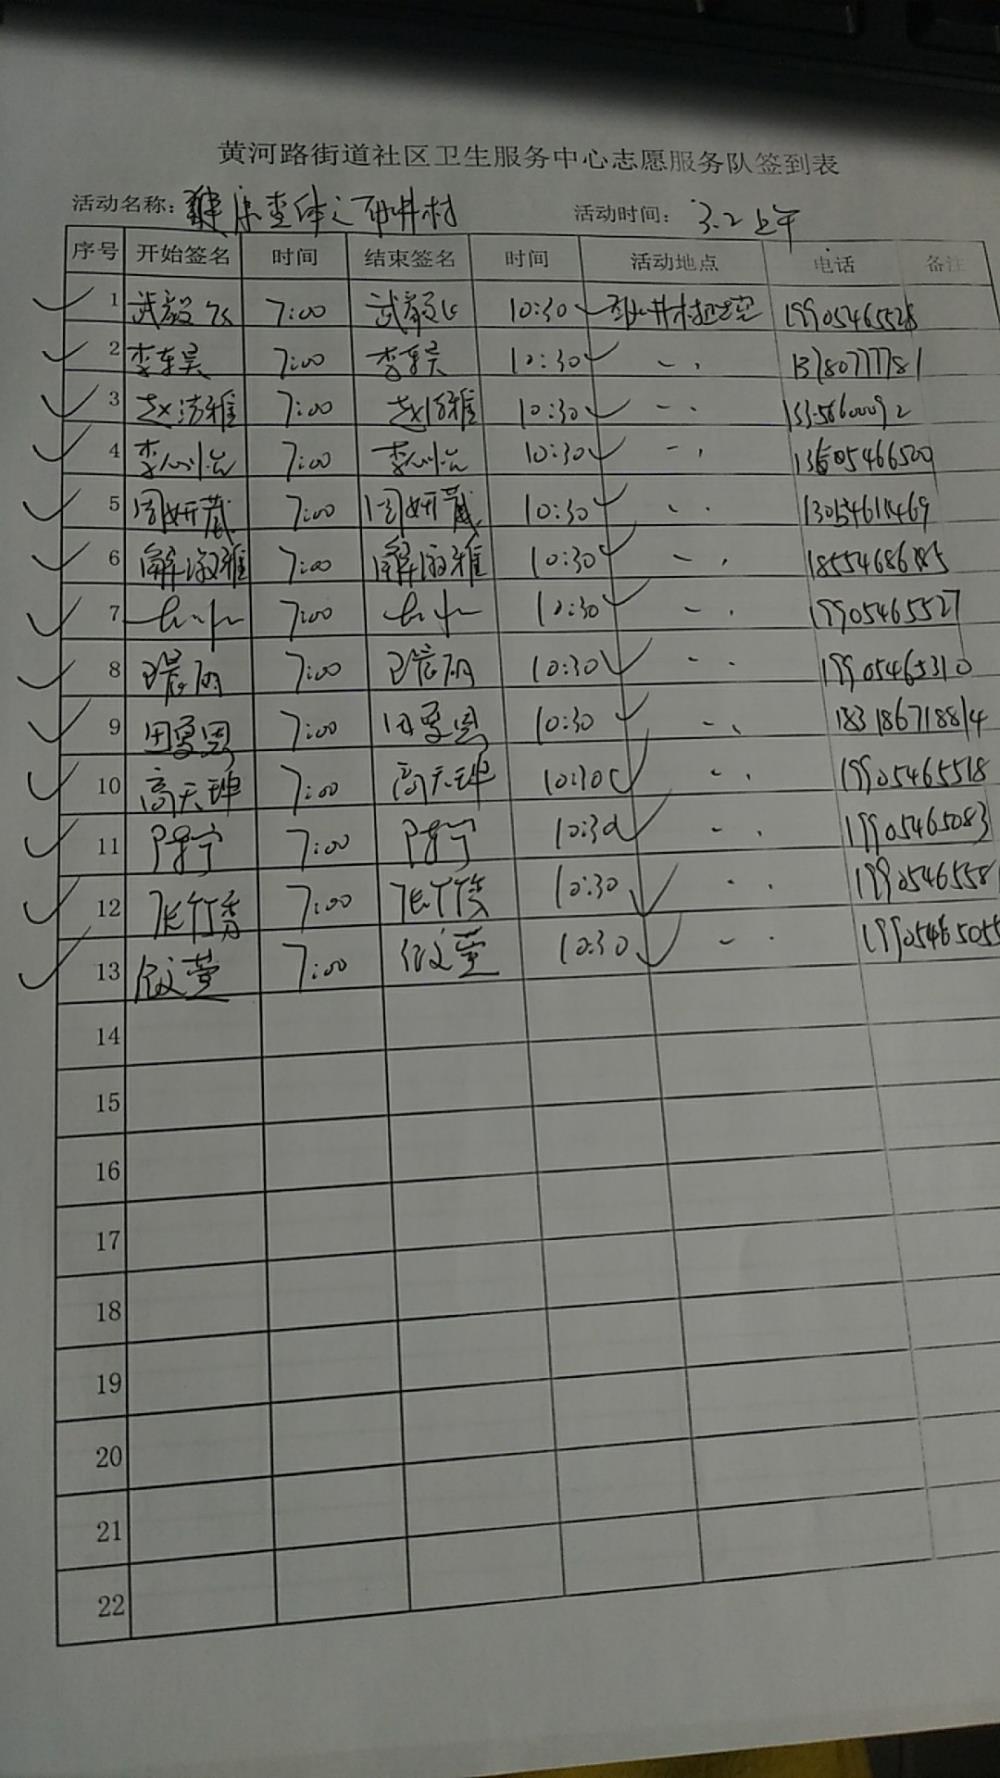 黄河路街道社区卫生服务中心志愿服务队签到表
活动名称: 健康查体之 井村 活动时间: 3.2上午
序号 开始签名 时间 结束签名 时间 活动地点 电话 备注
1 武毅飞 7:00 武毅飞 10:30 19905465528
2 李东昊 7:00 李东昊 10:30 13780777781
3 赵洁雅 7:00 赵洁雅 10:30
4 李 7:00 李 10:30
5 周妍葳 7:00 周妍葳 10:30
6 解淑雅 7:00 解淑雅 10:30
7 7:00 10:30 19905465527
8 7:00 10:30 19905465310
9 田夏恩 7:00 田夏恩 10:30 183186718814
10 高天坤 7:00 高天坤 10:30 19905465518
11 陈宁 7:00 陈宁 10:30 19905465083
12 张竹秀 7:00 张竹秀 10:30 1990546558
13 文萱 7:00 文萱 10:30 19905465055
14
15
16
17
18
19
20
21
22